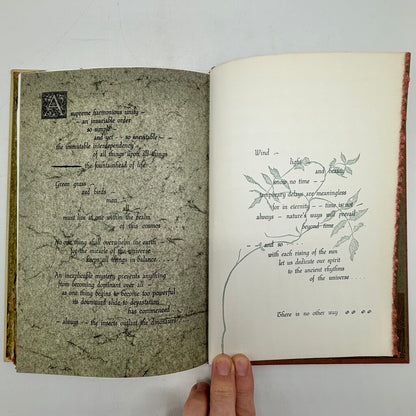 A
supreme harmonious unity –
– an invariable order
so simple –
and yet – so inevitable –
the immutable interdependency
of all things upon all things
the fountainhead of life.
Green grass
and birds
man,
all
must live at one within the realm
of this cosmos
No one thing shall overgovern the earth
for the miracle of the universe
keeps all things in balance.
An inexplicable mystery prevents anything
from becoming dominant over all
as one thing begins to become too powerful
its downward slide to devastation
has commenced
– always – the insects outlast the dinosaurs
Wind –
light
and beauty
know no time –
temporary delays are meaningless
for in eternity – time is not
always – nature's ways will prevail
beyond time
– and so . . .
with each rising of the sun
let us dedicate our spirit
to the ancient rhythms
of the universe . . . .
There is no other way